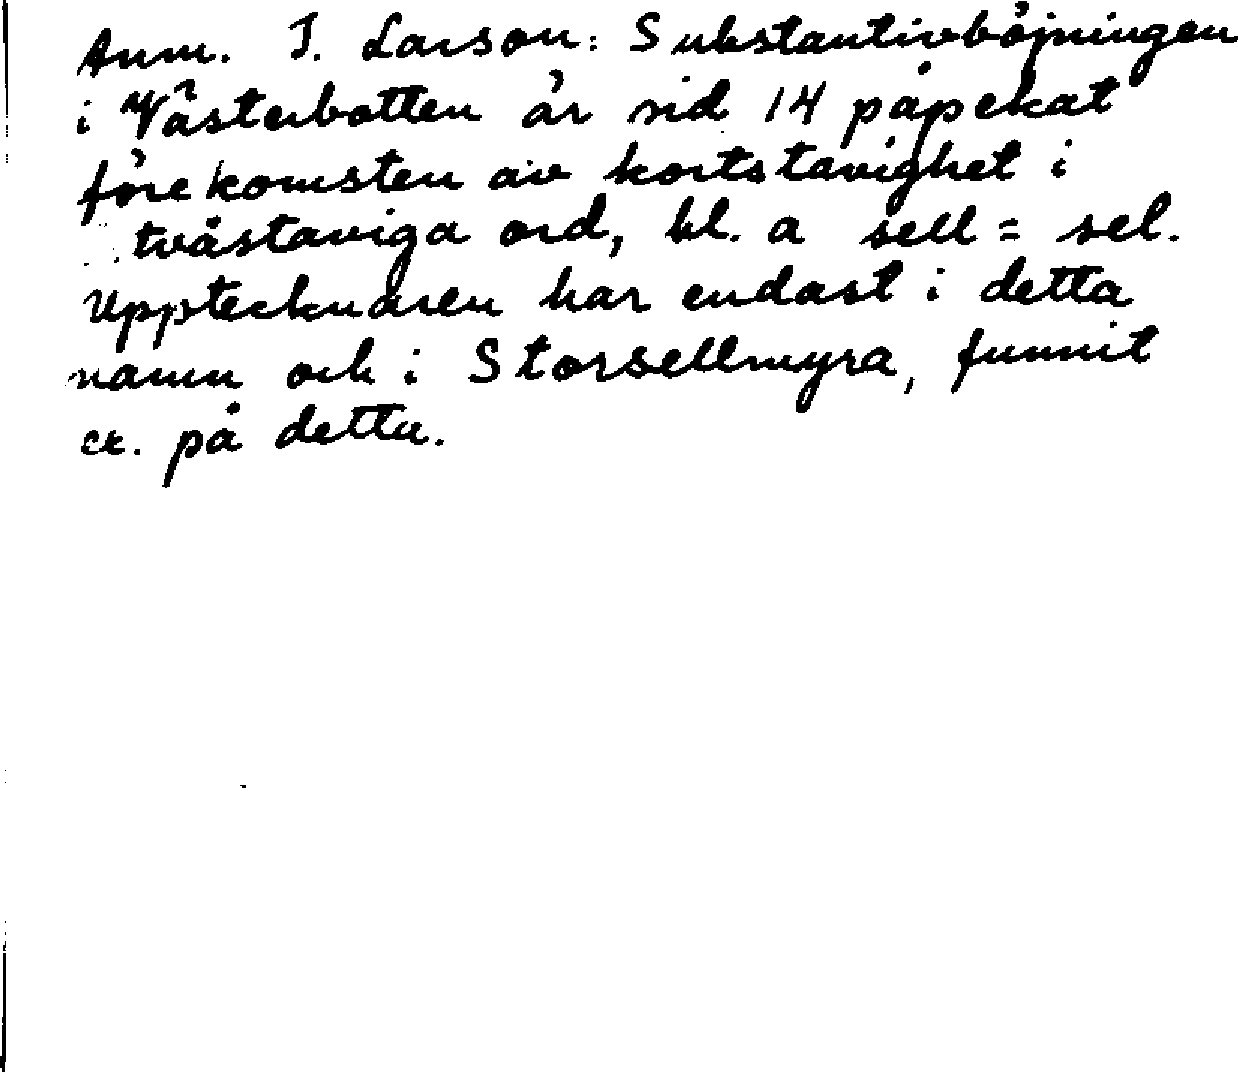 Anm. I. Larson: Substantivböjningen
i Västerbotten är sid 14 påpekat
förekomsten av kortstavighet i
tvåstaviga ord, bl. a sell = sel.
Upptecknaren har endast i detta
namn och i Storsellmyra, funnit
ex. på detta.